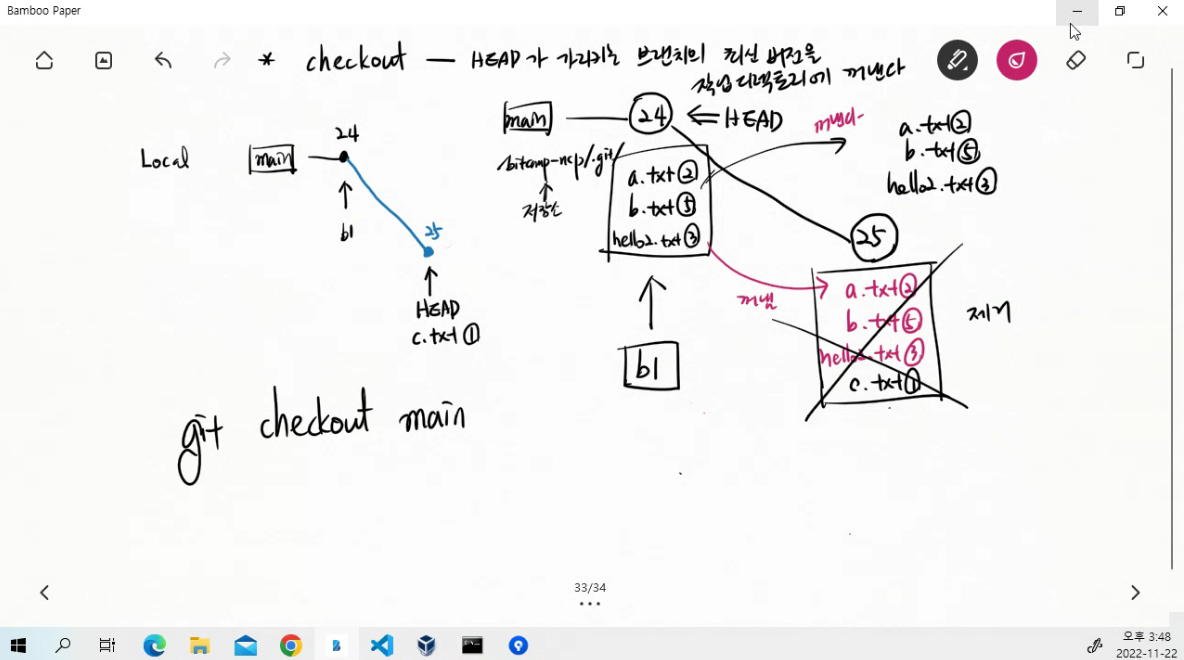 Bamboo Paper
* checkout — HEAD가 가리키는 브랜치의 최신 버전을
작업 디렉토리에 꺼낸다
Local
main
24
b1
25
HEAD
c.txt ①
main
24
⇐ HEAD
bitcamp-ncp/.git/
저장소
a.txt ②
b.txt ⑤
hello2.txt ③
b1
꺼낸다
a.txt ②
b.txt ⑤
hello2.txt ③
25
꺼냄
a.txt ②
b.txt ⑤
hello2.txt ③
c.txt ①
제거
git checkout main
33/34
오후 3:48
2022-11-22